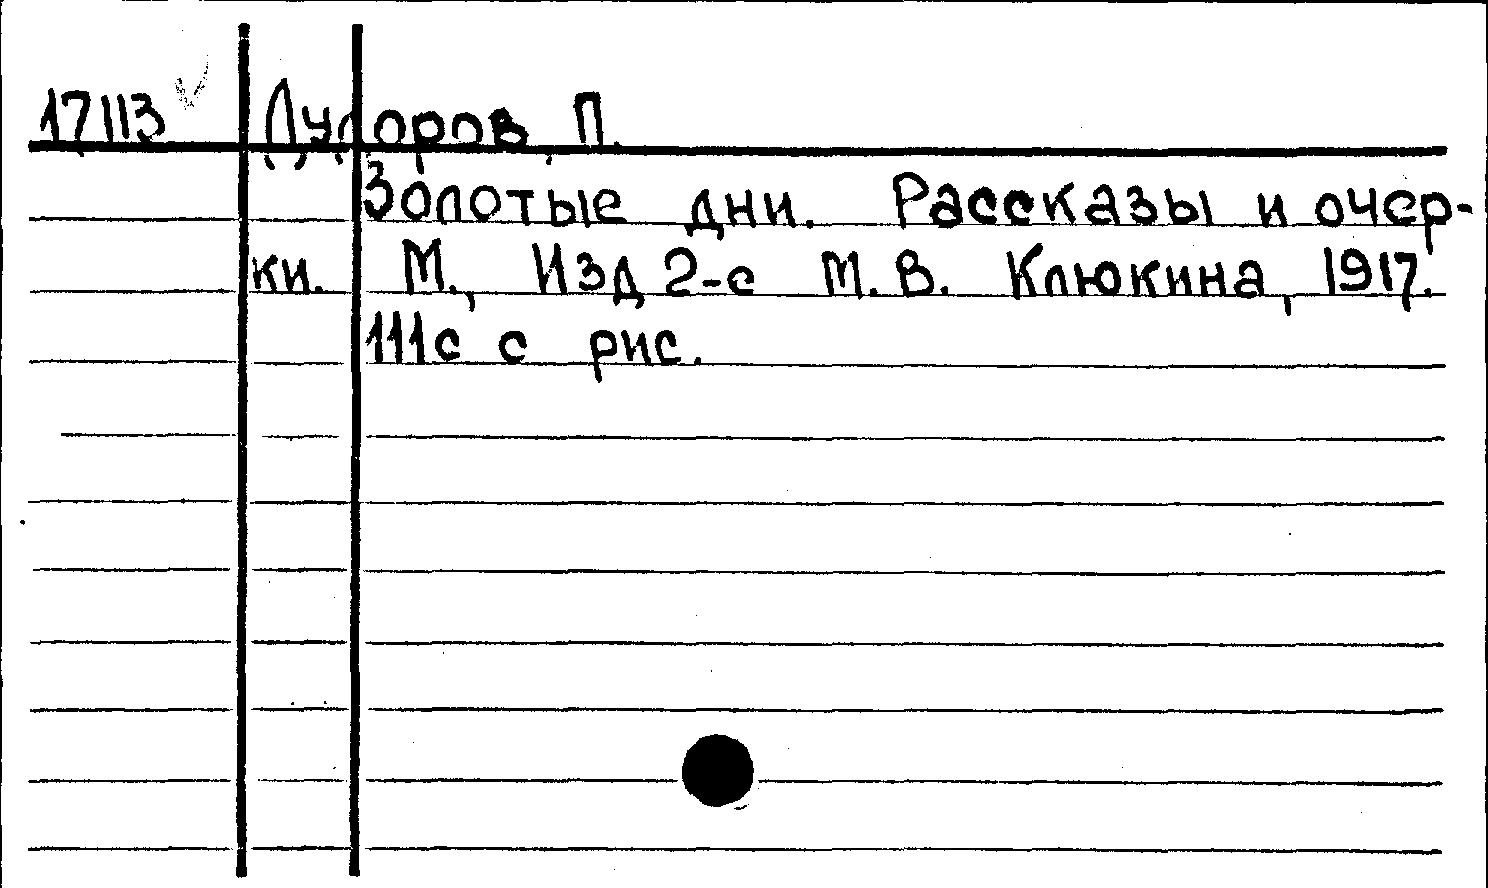 17113 Дудоров, П.
Золотые дни. Рассказы и очер-
ки. М., Изд 2-е М.В. Клюкина, 1917.
111с с рис.